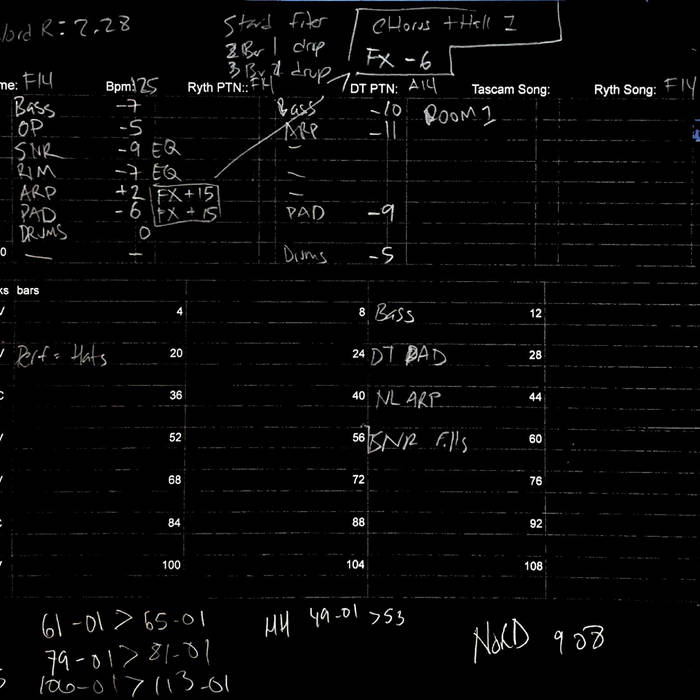 R: 2.28
Start filter
2 Bar 1 drop
3 Bar 2 drop
CHorus + Hall 1
FX -6
me: F14 Bpm: 125 Ryth PTN:: F14 DT PTN: A14 Tascam Song: Ryth Song: F14
BASS -7 Bass -10 ROOM 1
OP -5 ARP -11
SNR -9 EQ —
RIM -7 EQ —
ARP +2 FX +15 —
PAD -6 FX +15 PAD -9
DRUMS 0
0 — — Drums -5
ks bars
4 8 Bass 12
Perf = Hats 20 24 DT PAD 28
36 40 NL ARP 44
52 56 SNR Fills 60
68 72 76
84 88 92
100 104 108
61-01 > 65-01 HH 49-01 > 53
79-01 > 81-01 NORD 908
106-01 > 113-01